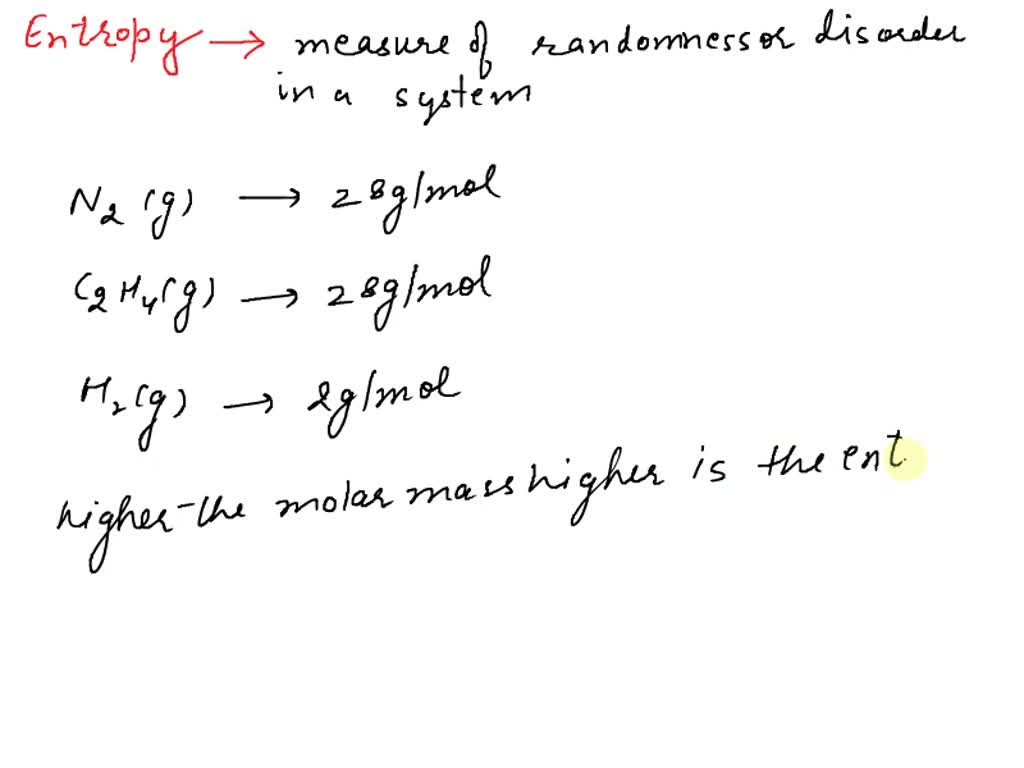 Entropy → measure of randomness or disorder
in a system
N₂ (g) → 28g/mol
C₂H₄(g) → 28g/mol
H₂(g) → 2g/mol
higher the molar mass higher is the ent